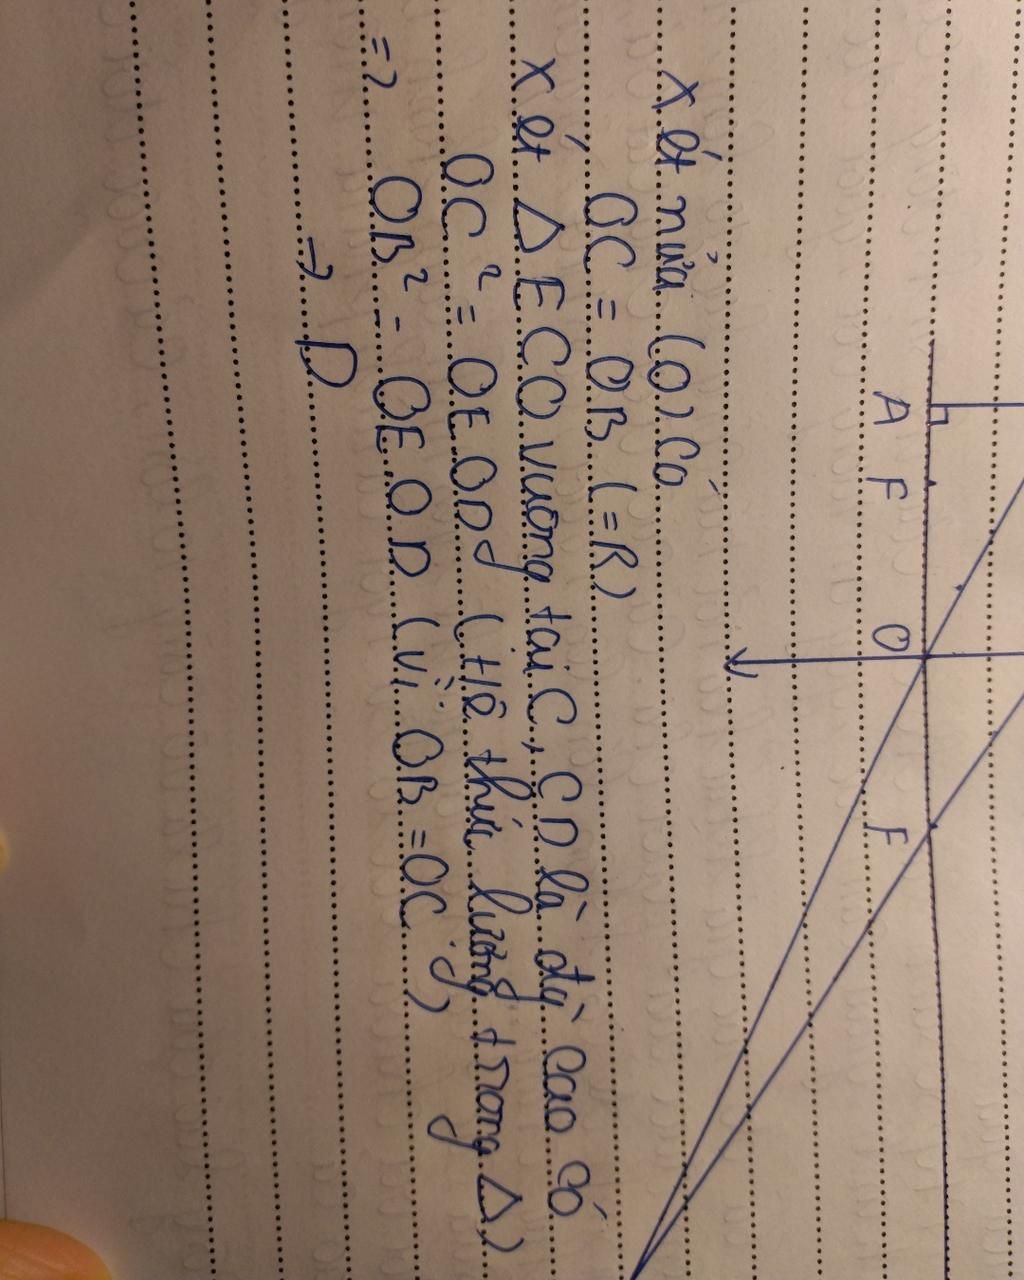 A F O F
Xét nửa (O) Có
OC = OB (=R)
Xét Δ ECO vuông tại C, CD là đg cao có
OC² = OE.OD (Hệ thức lượng trong Δ)
=> OB² = OE.OD (vì OB = OC)
→ D